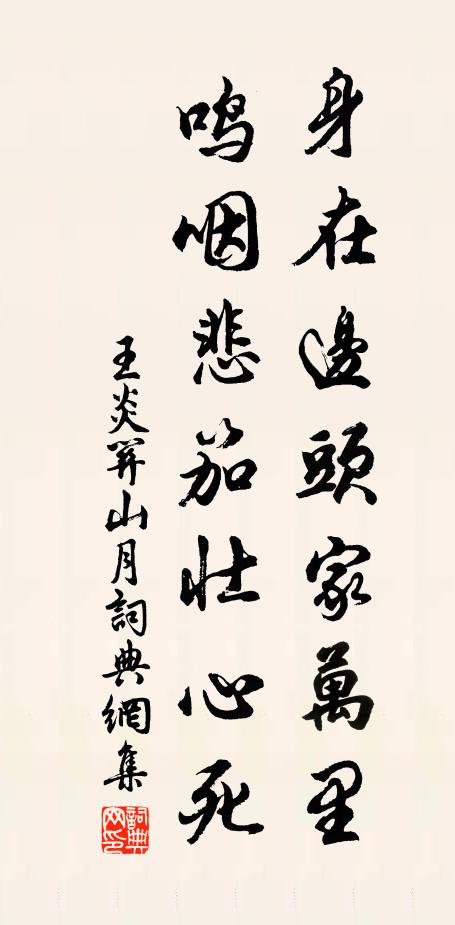 身在邊頭家萬里
鳴咽悲笳壯心死
王炎關山月詞典網集
詞典網印